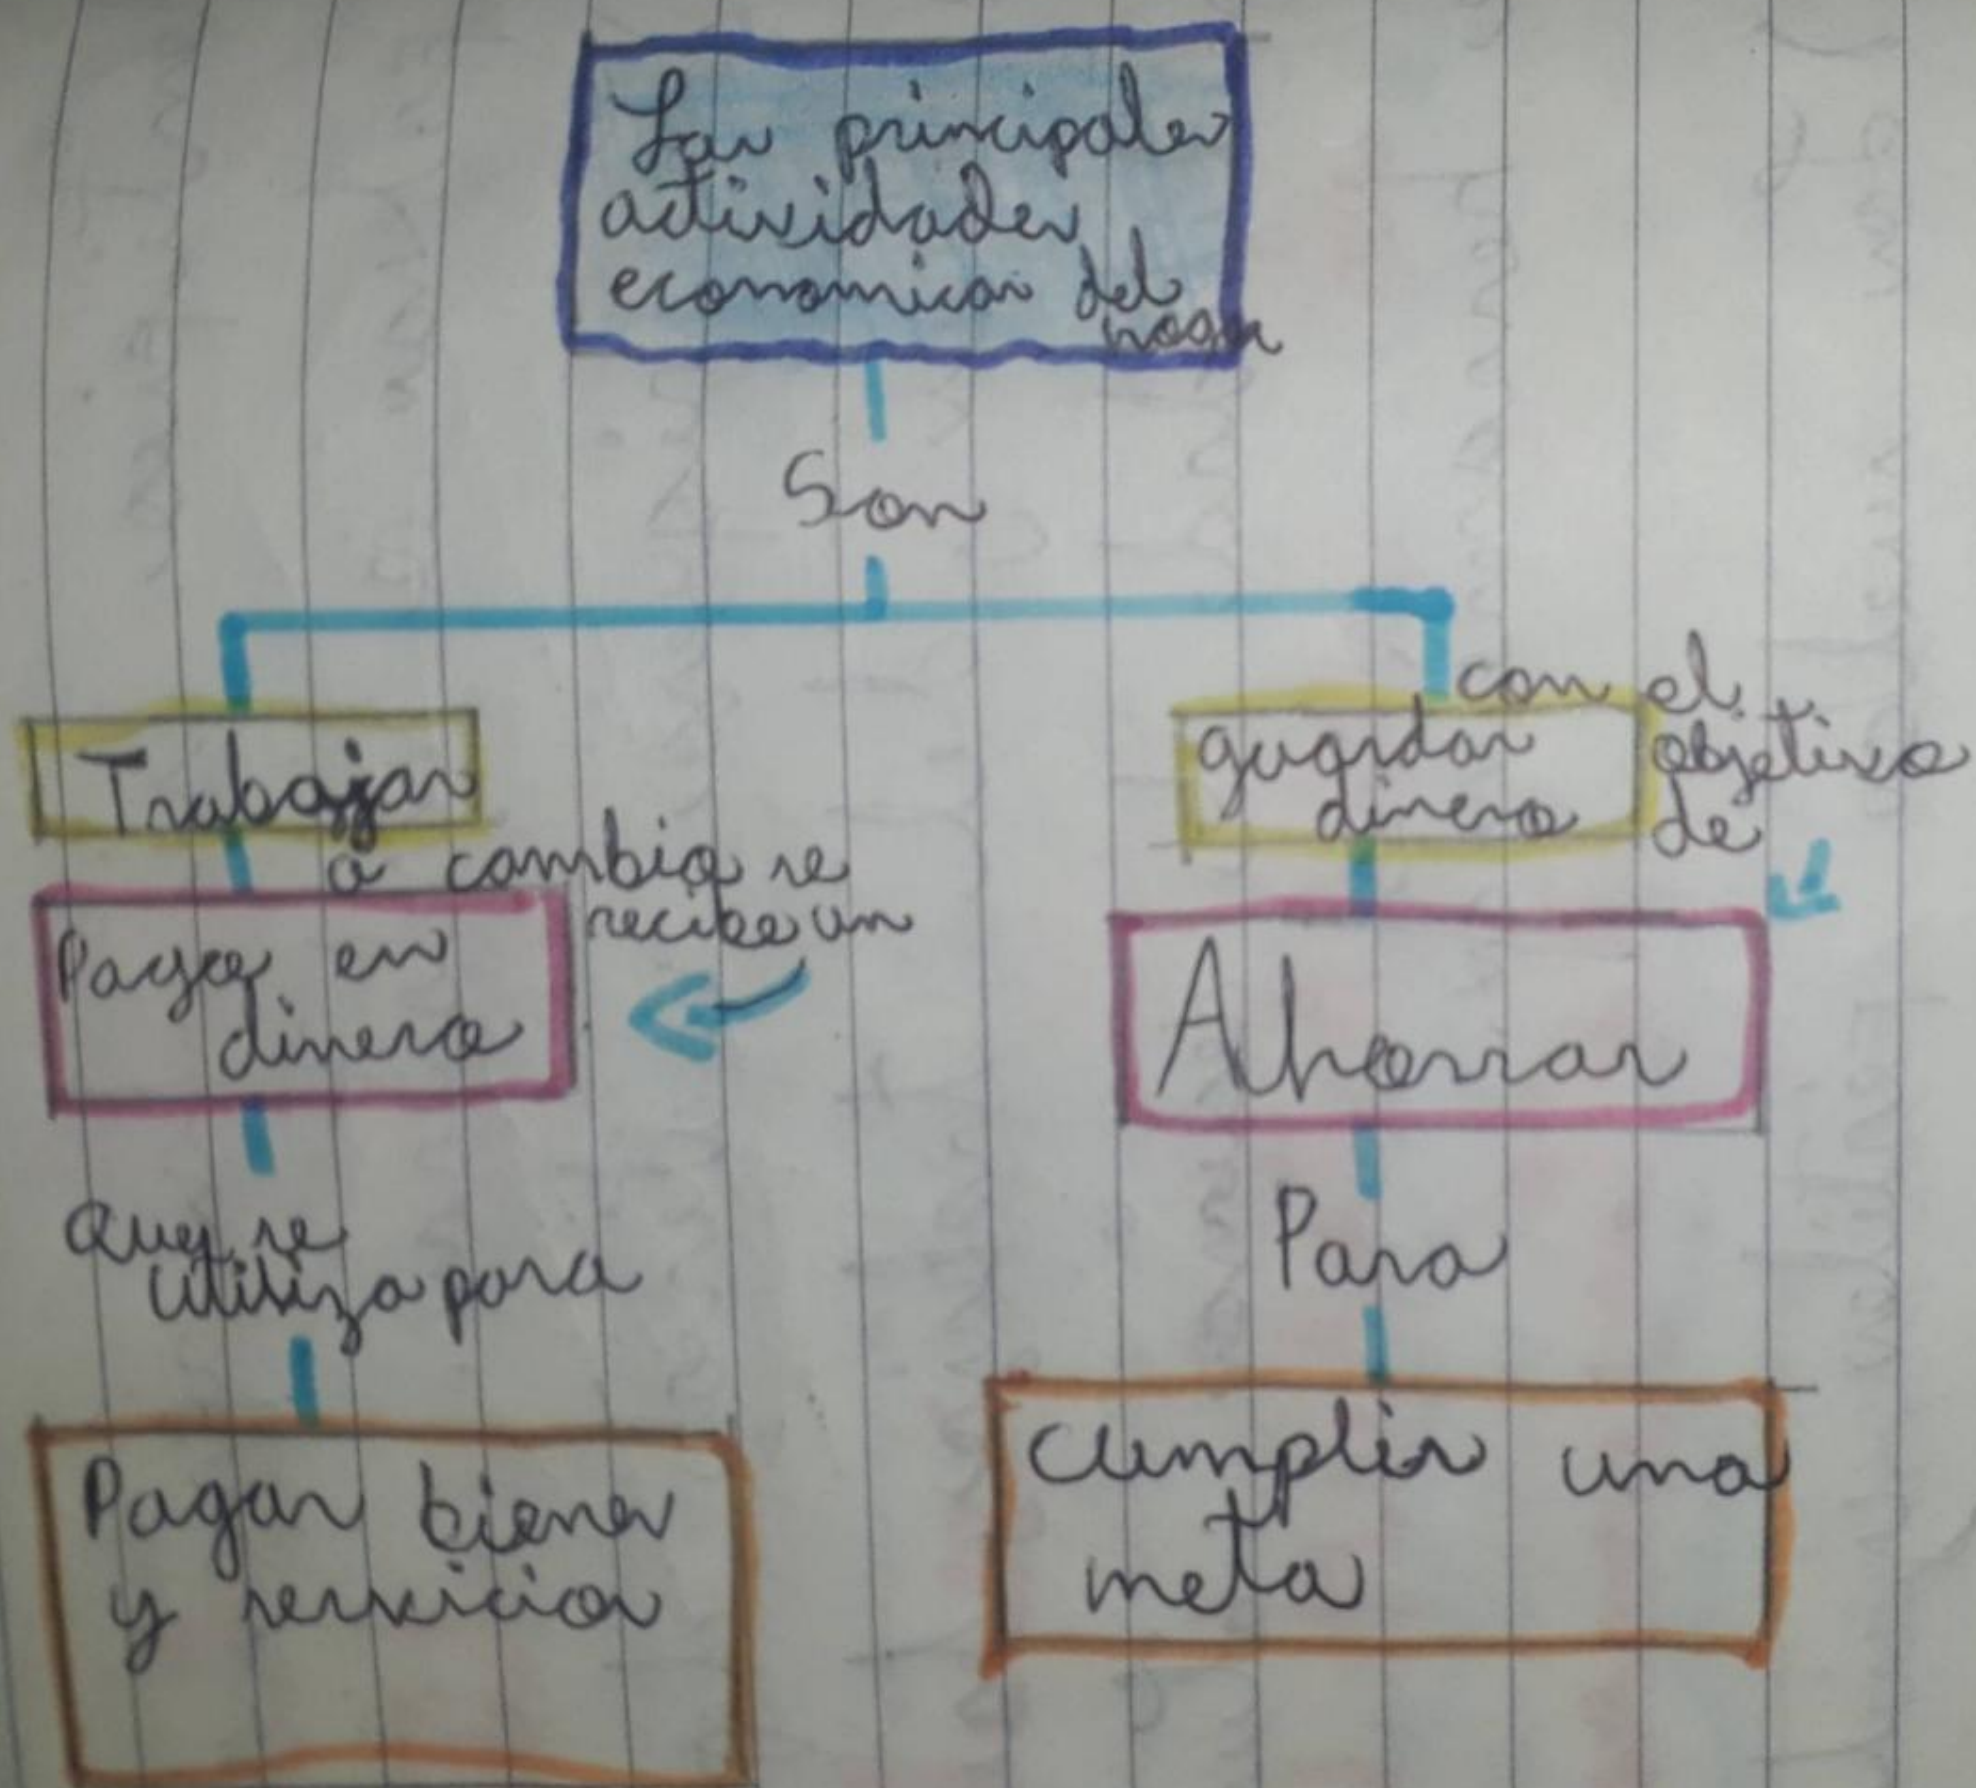 Las principales
actividades
economicas del
hogar
Son
Trabajar
a cambio se
recibe un
Pago en
dinero
Que se
utiliza para
Pagar bienes
y servicios
guardar
dinero
con el
objetivo
de
Ahorrar
Para
Cumplir una
meta